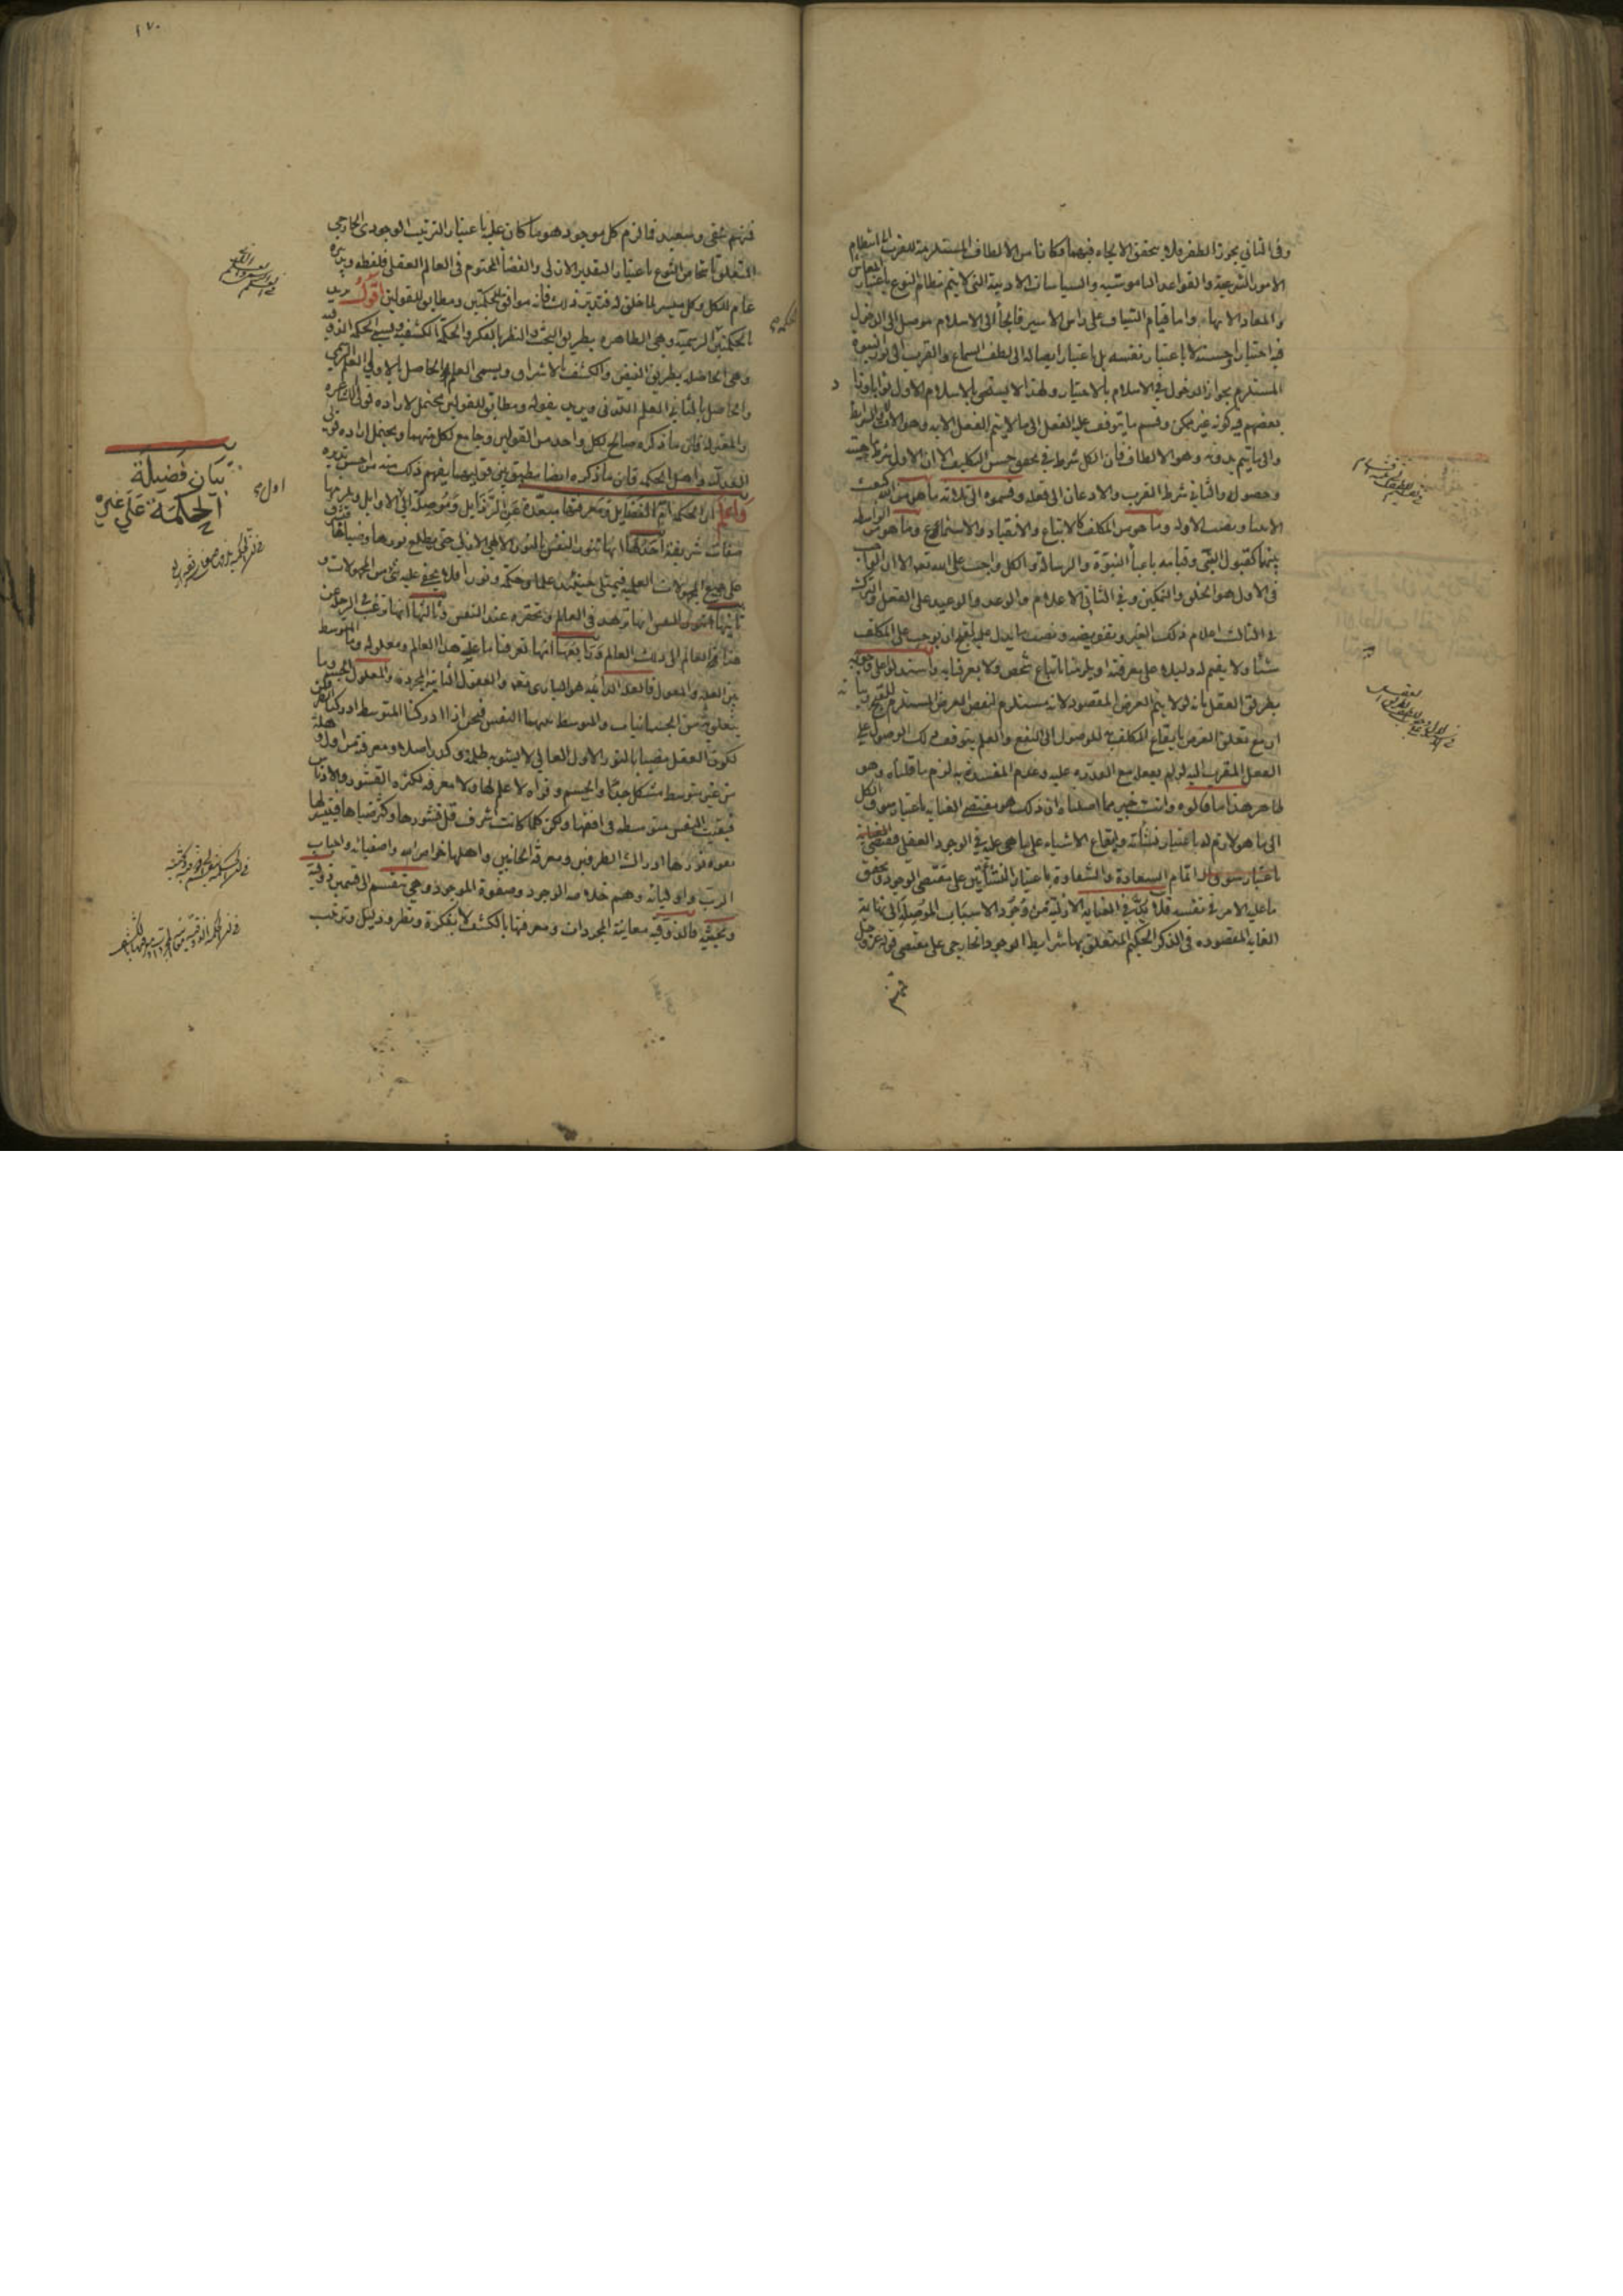 وفي الثاني يجوز الظفر فلا يتحقق الالجاء فيهما فكانا من الالطاف المستلزمة للقرب الى انتظام
الامور الشرعية والقواعد الناموسية والسياسات الادبية التي لا يتم نظام النوع باعتبار المعاش
والمعاد الا بها واما قيام السياف على راس الاسير فالجأ الى الاسلام موصل الى الدخول
فيه اختيارا وحسنه لا باعتبار نفسه بل باعتبار ايصاله الى لطف السماع والقرب الى نور النبوة
المستلزم بجواز الدخول في الاسلام بالاختيار ولهذا لا يستحق بالاسلام الاول ثوابا
بعضهم فيه كونه غير ممكن وقسم ما يتوقف عليه الفعل الى ما لا يتم الفعل الا به وهو الآلات والشرائط
والى ما يتم بدونه وهو الالطاف فان الكل شرط في تحقق حسن التكليف الا ان الاول شرط
وحصوله والثاني شرط القرب والاذعان الى فعله وقسموه الى ثلاثة ما هو من الله كبعث
الانبيا ونصب الادلة وما هو من المكلف كالاتباع والانقياد والاستماع وما هو من الواسطة
بينهما كقبول النبي وقيامه باعبأ النبوة والرسالة والكل واجب على الله تعالى الا ان الواجب
في الاول هو الخلق والتمكين وفي الثاني الاعلام والوعد والوعيد على الفعل والترك
في الثالث اعلام ذلك الغير وتفويضه ونصب ما يدل عليه لقبح ان يوجب على المكلف
شئا ولا يقيم له دليلا على معرفته او يلزمنا باتباع شخص ولا يعرفنا به واستدلوا على وجوبه
بطريق العقل بانه لولاه لم يتم الغرض المقصود لانه مستلزم لنقض الغرض المستلزم للقبح
ان مع تعلق الغرض بايقاع المكلف به للوصول الى النفع والعلم بتوقف ذلك الوصول على
الفعل المقرب اليه لو لم يفعل مع القدرة عليه وعدم المفسدة به لزم ما قلناه وهو
ظاهر هذا ما قالوه وانت خبير بما اصلناه ان ذلك هو مقتضى العناية باعتبار سوق الكل
الى ما هو لازم له باعتبار نشأته وايقاع الاشياء على ما هي عليه في الوجود العقلي فمقتضى العناية
باعتبار سوق اقام السعادة والشقاوة باعتبار النشأتين على مقتضى الوجود وتحقق
ما عليه الامر في نفسه فلا بد في العناية الازلية من وجود الاسباب الموصلة الى نهاية
الغاية المقصودة في الذكر الحكيم المتعلق بها شرايط الوجود الخارجي على مقتضى قوله عز وجل
فمنهم
فمنهم شقي وسعيد فالزم كل موجود هو ما كان عليه باعتبار الترتيب الوجودي الخارجي
المتعلق باشخاص النوع باعتبار التقدير الازلي والقضأ المحتوم في العالم العقلي فلفظه
عام للكل وكل ميسر لما خلق له فتدبر ذلك فانه موافق للحكمتين ومطابق للقولين اقول يريد
بالحكمتين الرسمية وهي الظاهرة بطريق البحث والنظر بالفكر والحكمة الكشفية ويسمى الحكمة الذوقية
وهي الحاصلة بطريق الفيض والكشف بالاشراق ويسمى العلم الحاصل بالاولى العلم الرسمي
والحاصل بالثانية العلم اللدني ويريد بقوله ومطابق للقولين يحتمل لارادة قولي الاشاعرة
والمعتزلة فان ما ذكره صالح لكل واحد من القولين وجامع لكل منهما ويحتمل ارادة قولي
العدل واهل الحكمة فان ما ذكره ايضا تطبيق بين قوليهما يفهم ذلك منه من احسن تدبره
واعلم ان الحكمة اتم الفضايل ومعرفتها مبعدة عن الرذايل وموصلة الى الاوايل ويلزمها
صفات شريفة احدها انها تنور النفس بالنور الالهي الازلي حتى يطلع نورها وضياها
على جميع المجهولات العلمية فيمتلى حينئذ علما وحكمة ونورا فلا يخفى عليه شئ من المجهولات و
ثانيها انها تزهد في العالم وتحقره عند النفس وثالثها انها ترغب في الرحلة عن
هذا العالم الى ذلك العالم ورابعها انها تعرفنا ما علة هذا العالم ومعلوله وما المتوسط
بين العلة والمعلول فالعلة الدايمة هو الباري تعالى والعقول الثانية المجردة والمعلول الجسم وما
يتعلق به من الجسمانيات والمتوسط بينهما النفس فنحن اذا ادركنا المتوسط ادركنا الطرفين
لكون العقل مضيا بالنور الاول العالي لا يشوبه ظلمة وكدر اصلا ومعرفته من اول وهلة
من غير متوسط مشكل جدا والجسم وقواه لا علم لها ولا معرفة لكثرة القشور والادناس
فبقيت النفس متوسطة في افقها ولكن كلما كانت اشرف قل قشورها وكثر ضياها فيتهيا لها
بقوة نورها ادراك الطرفين ومعرفة الجانبين واهلها خواص الله واصفيائه واحباب
الرب واوليائه وهم خلاصة الوجود وصفوة الموجود وهي تنقسم الى قسمين ذوقية
وبحثية فالذوقية معاينة المجردات ومعرفتها بالكشف لا بفكرة ونظر ودليل وترتيب
بيان فضيلة
الحكمة على غيره
١٧٠